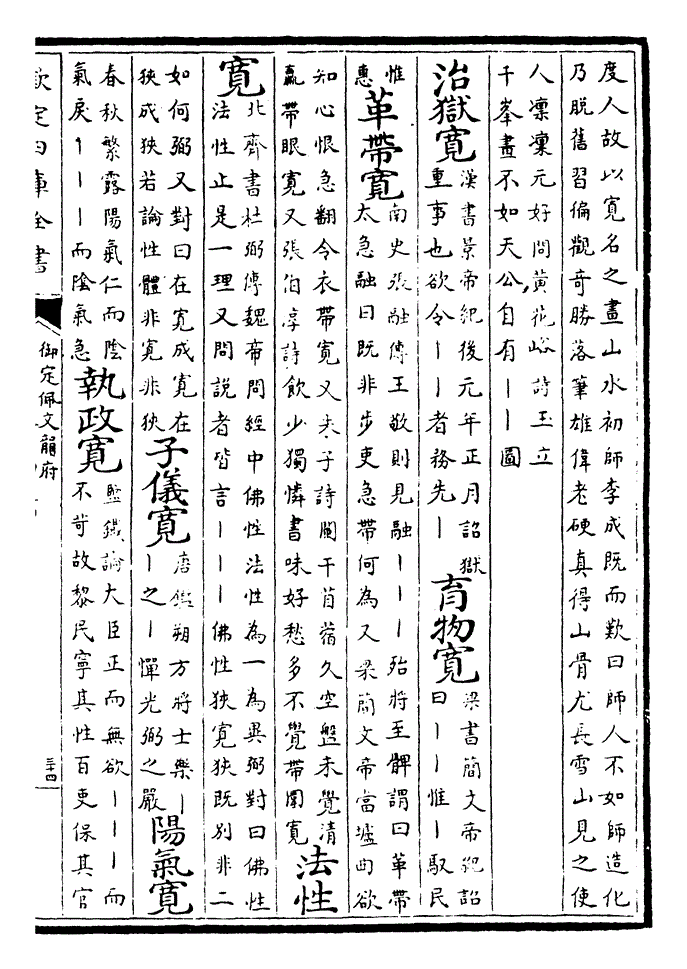 度人故以寛名之畫山水初師李成既而歎曰師人不如師造化
乃脫舊習徧觀奇勝落筆雄偉老硬真得山骨尤長雪山見之使
人凜凜元好問黄花峪詩玉立
千峯畫不如天公自有丨丨圖
治獄寛
漢書景帝紀後元年正月詔獄
重事也欲令丨丨者務先丨
育物寛
梁書簡文帝紀詔
曰丨丨惟丨馭民
惟
惠
革帶寛
南史張融傳王敬則見融丨丨丨殆將至髀謂曰革帶
太急融曰既非步吏急帶何為又梁簡文帝當壚曲欲
知心恨急翻令衣帶寛又朱子詩闌干苜蓿久空盤未覺清
羸帶眼寛又張伯淳詩飲少獨憐書味好愁多不覺帶圍寛
法性
寛
北齊書杜弼傳魏帝問經中佛性法性為一為異弼對曰佛性
法性止是一理又問說者皆言丨丨丨佛性狹寛狹既别非二
如何弼又對曰在寛成寛在
狹成狹若論性體非寛非狹
子儀寛
唐鑑朔方將士樂丨
丨之丨憚光弼之嚴
陽氣寛
春秋繁露陽氣仁而陰
氣戾丨丨丨而陰氣急
執政寛
鹽鐵論大臣正而無欲丨丨丨而
不苛故黎民寧其性百吏保其官
欽定四庫全書
御定佩文韻府
三十四